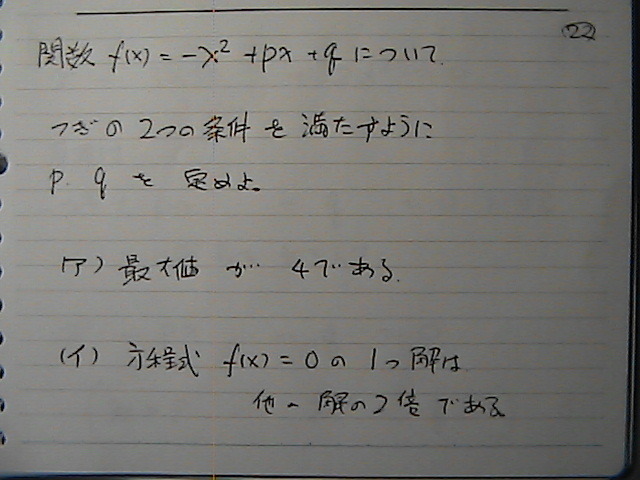 22
関数 f(x) = -x² + px + q について
つぎの 2つの条件 を 満たすように
p q を 定めよ。
(ア) 最大値 が 4である。
(イ) 方程式 f(x) = 0 の 1つ解は
他の解の2倍である。